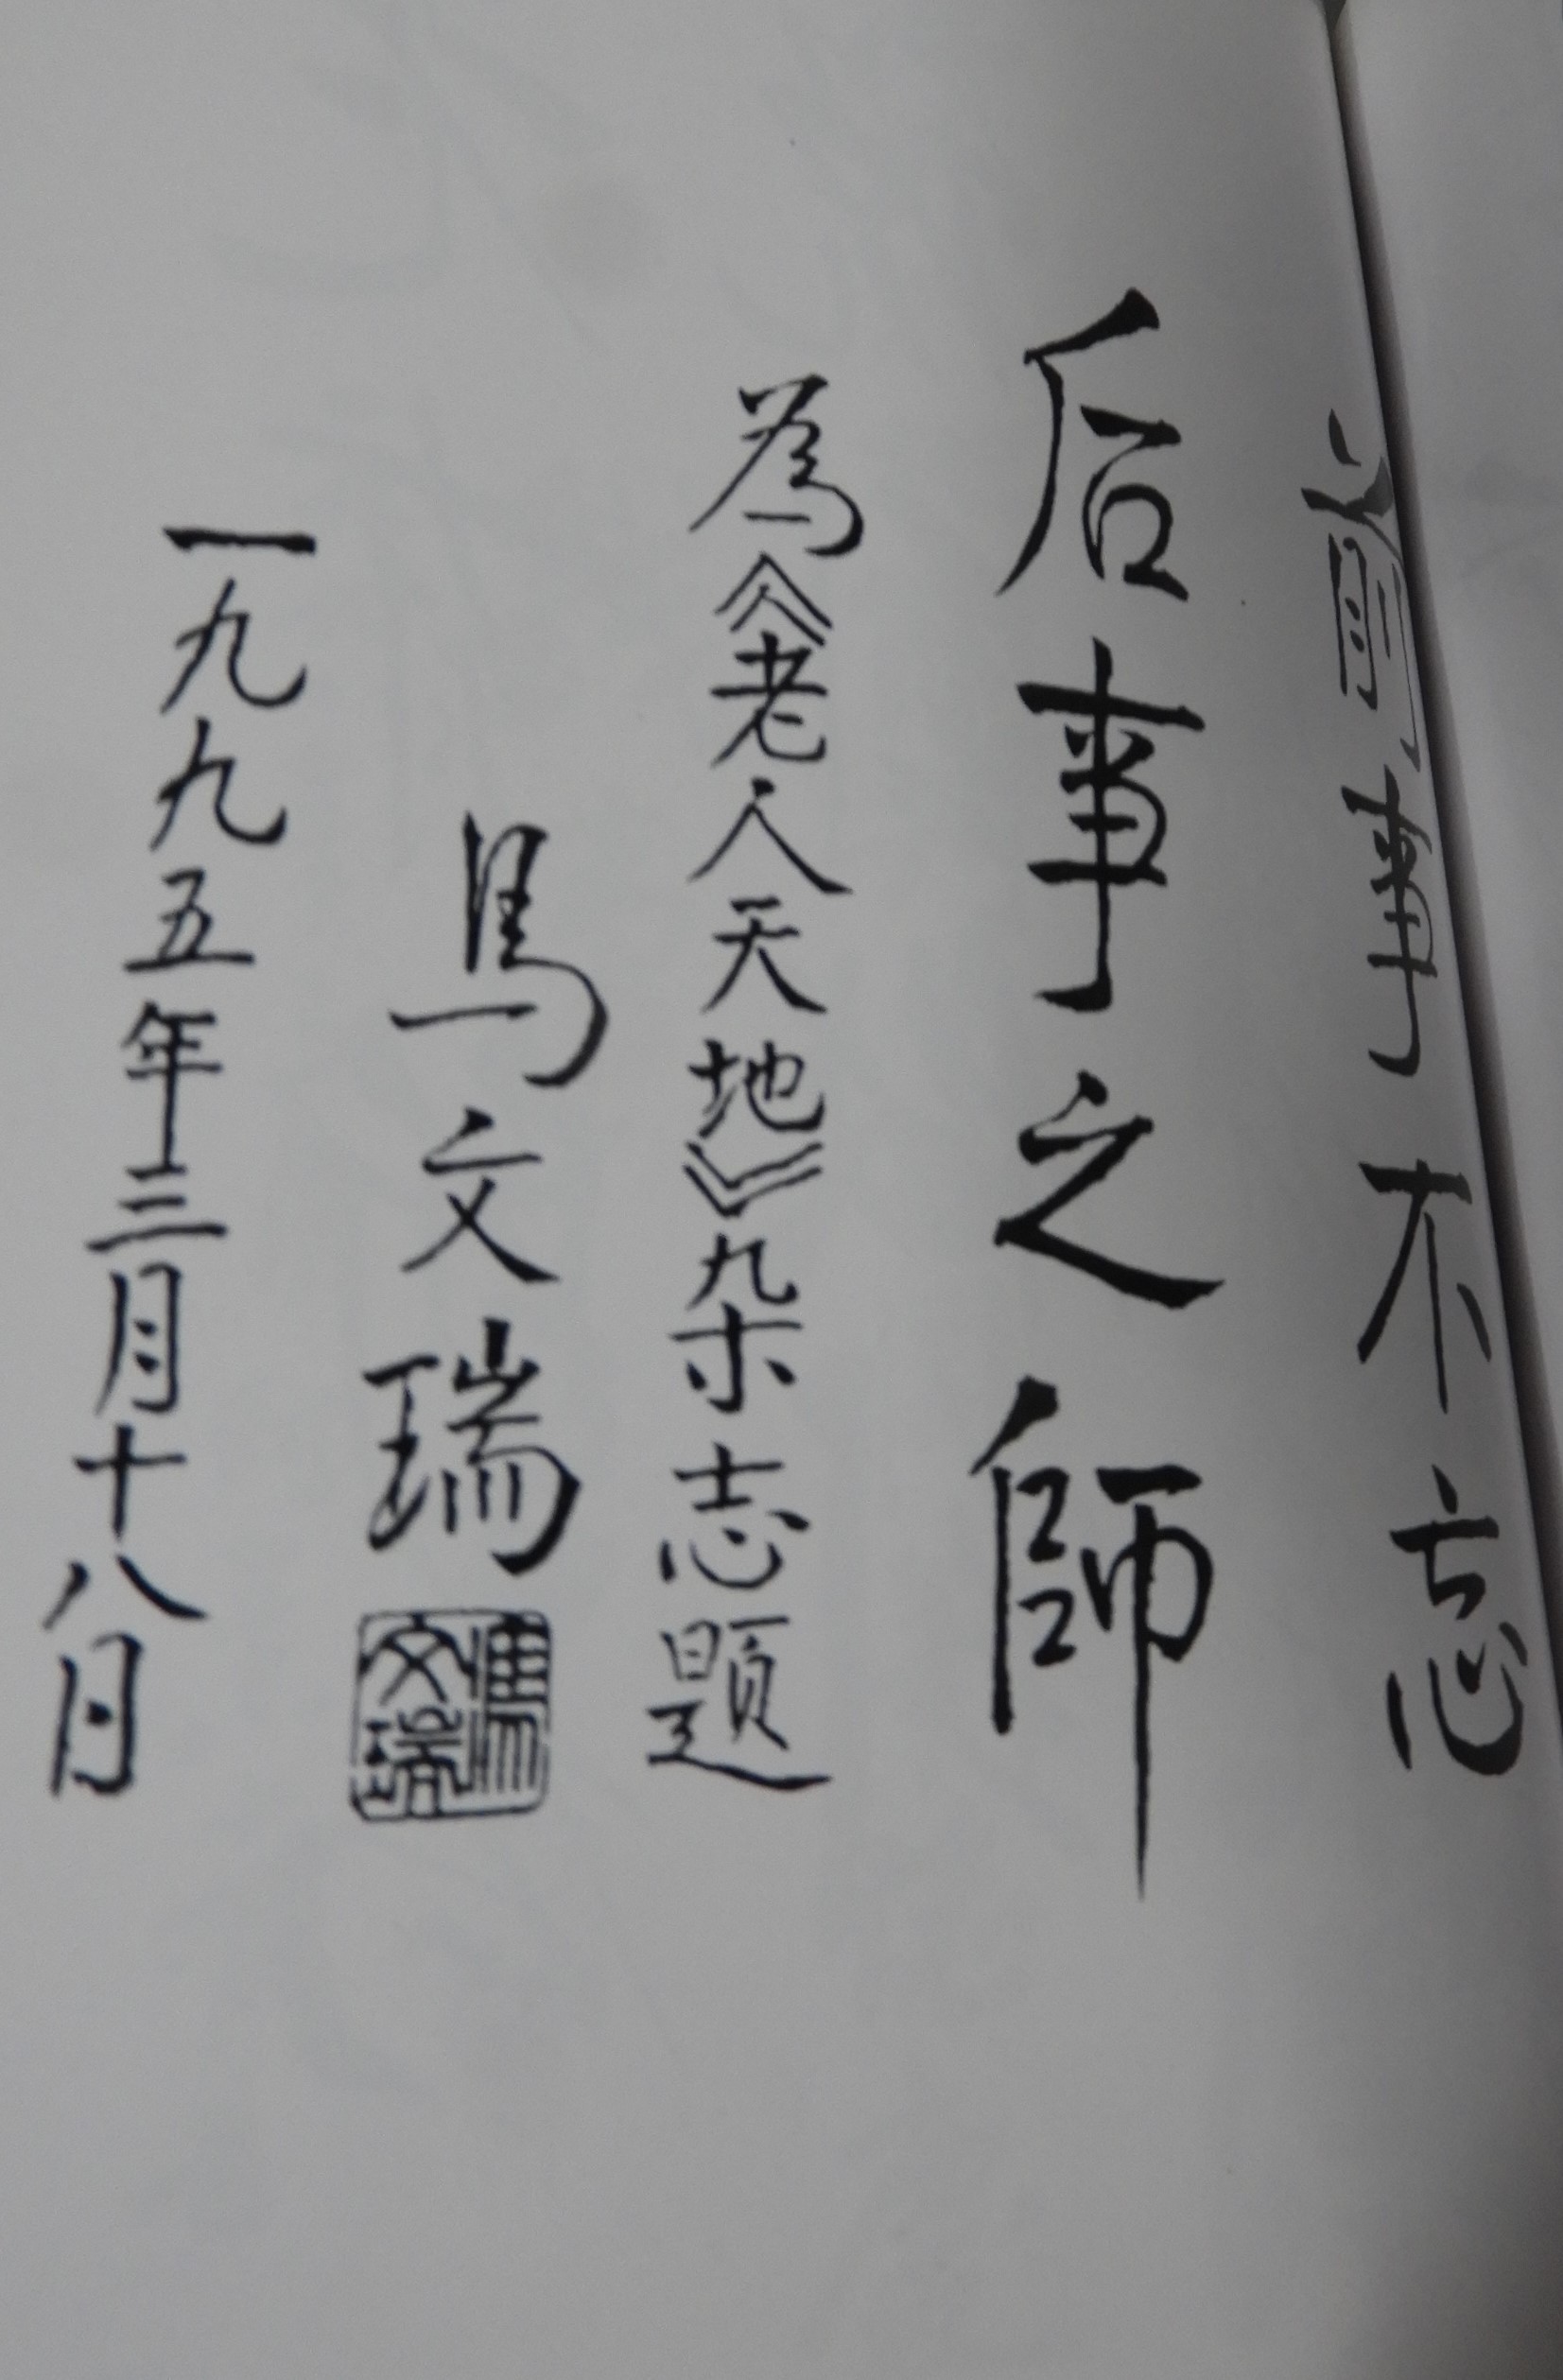 前事不忘
后事之師
為《老人天地》杂志題
馬文瑞
馬文瑞
一九九五年三月十八日